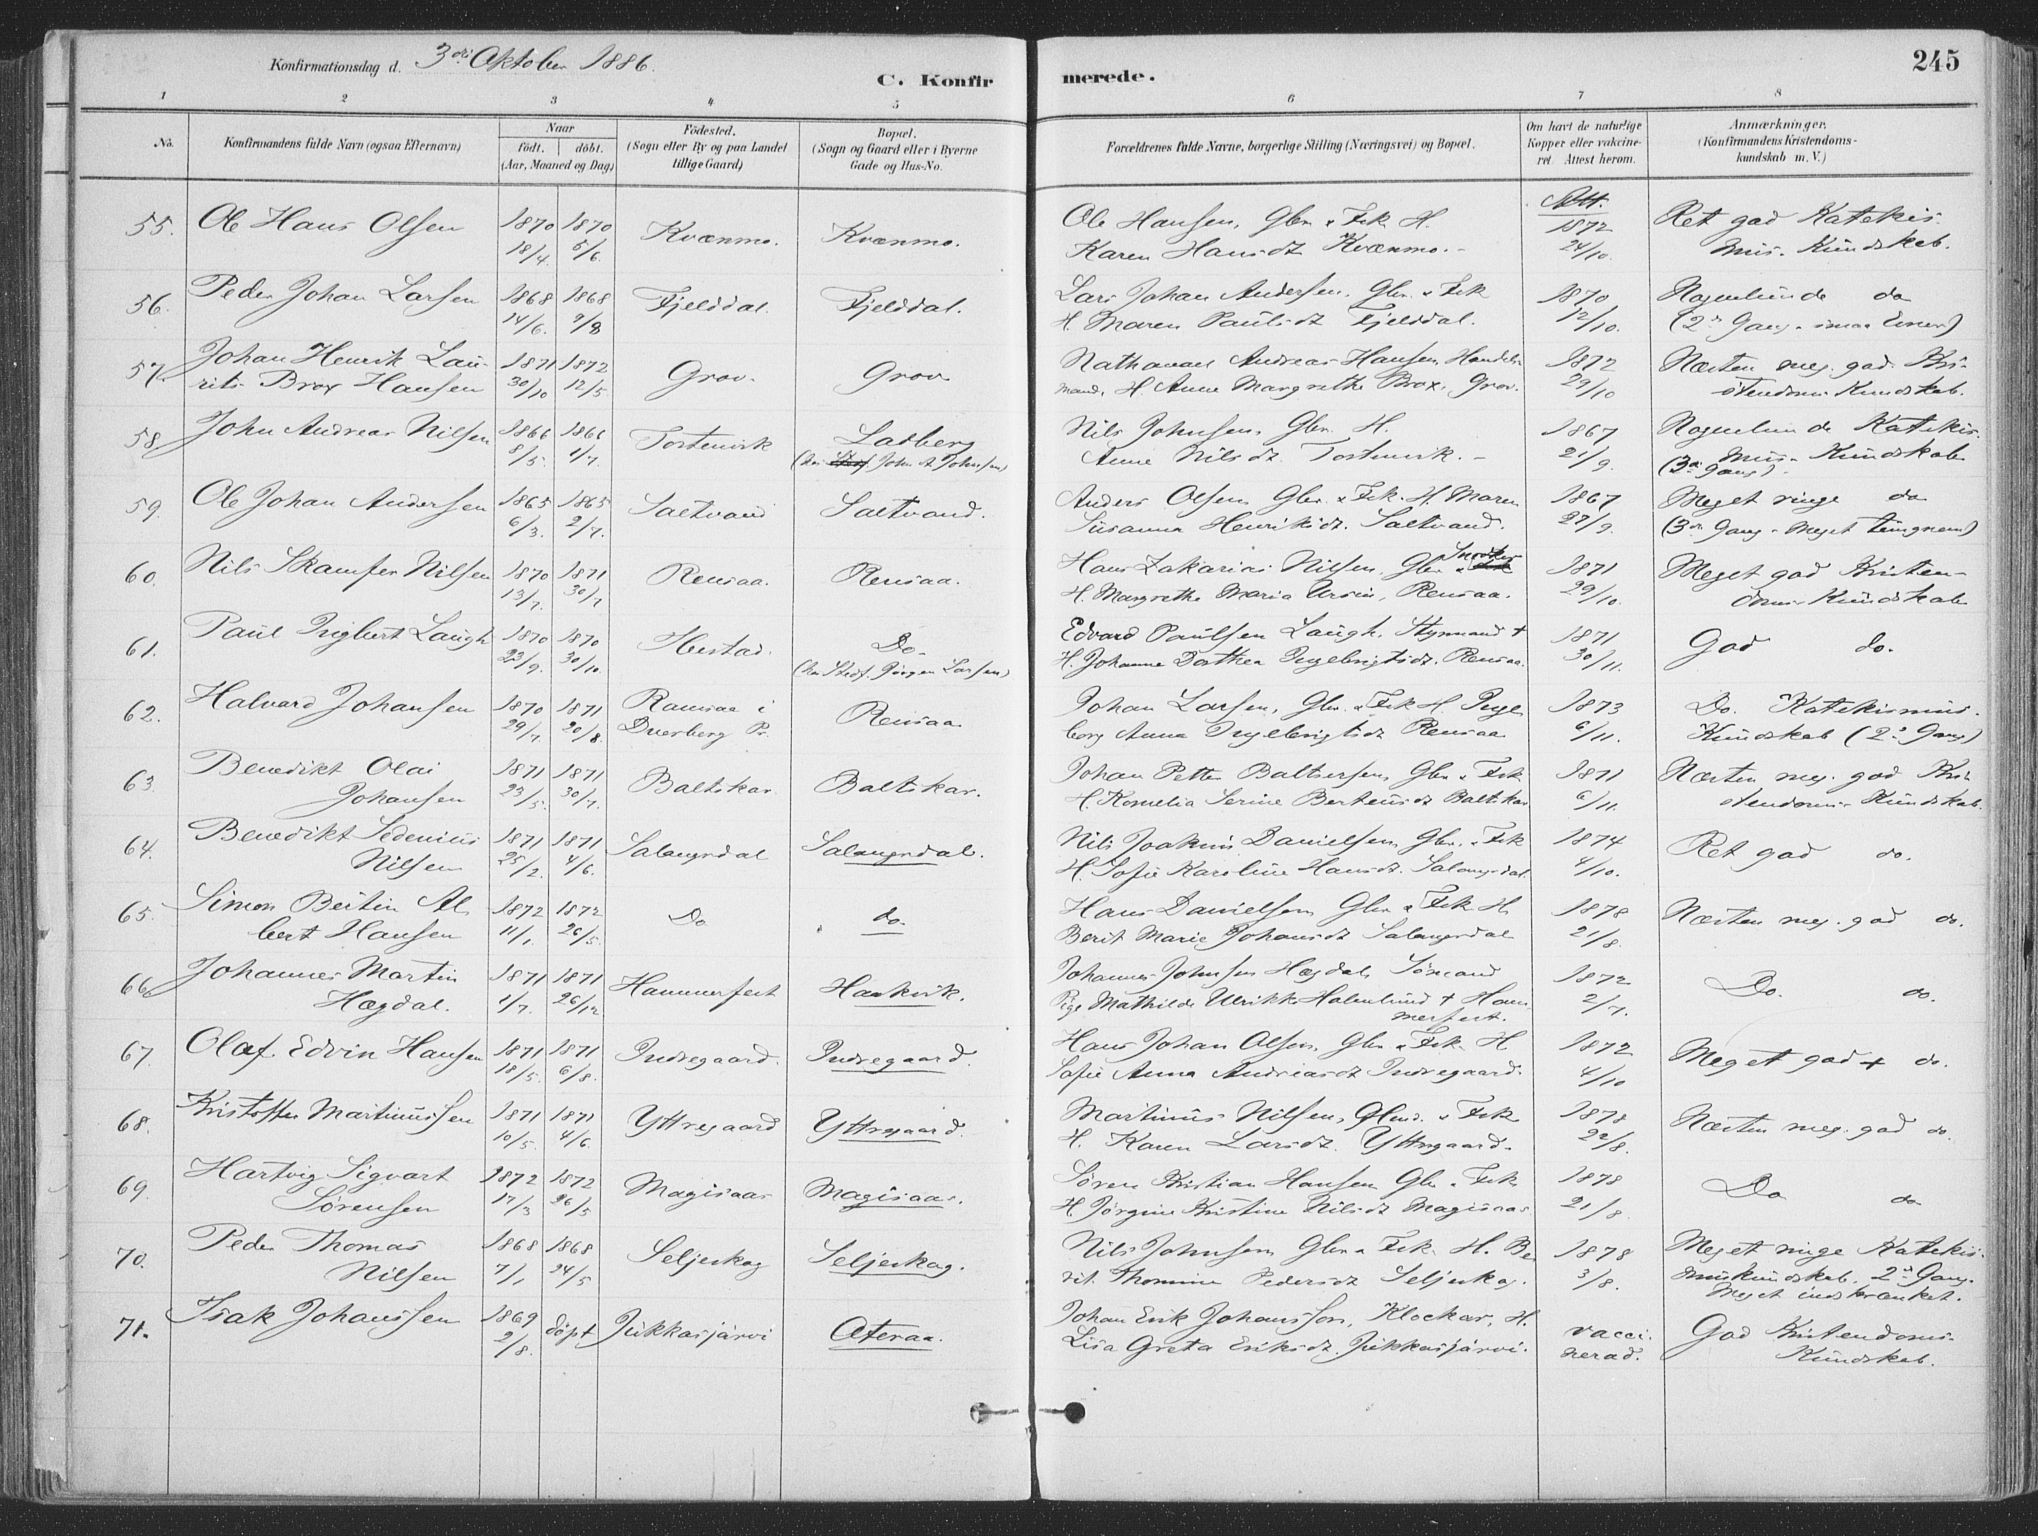 Konfirmationsdag d. 3die Oktober 1886.
C. Konfir
merede.
245
1 2 3 4 5 6 7 8
No.
Konfirmandens fulde Navn (ogsaa Efternavn)
Naar
födt. döbt.
(Aar, Maaned og Dag)
Födested.
(Sogn eller By og paa Landet
tillige Gaard)
Bopæl.
(Sogn og Gaard eller i Byerne
Gade og Hus-No.
Forældrenes fulde Navne, borgerlige Stilling (Næringsvei) og Bopæl.
Om havt de naturlige
Kopper eller vakcine-
ret. Attest herom.
Anmærkninger.
(Konfirmandens Kristendoms-
kundskab m. V.)
Att.
55. Ole Hans Olsen 1870 1870 Kvænmo. Kvænmo. Ole Hansen, Gbr. & Fsk H. 1872 Ret god Katekis
18/4. 5/6. Karen Hansdt Kvænmo. 24/10. mus. Kundskab.
56. Peder Johan Larsen 1868 1868 Fjelddal. Fjelddal. Lars Johan Andersen, Gbr. & Fsk 1870 Nogenlunde do
14/6. 9/8 H. Maren Paulsdt Fjelddal. 12/10. (2den Gang
57. Johan Henrik Lau- 1871 1872 Grov. Grov Nathanael Andreas Hansen, Handels 1872 Næsten meg. god Kri-
rits Brox Hansen 30/10 12/5 mand, H. Anne Margrethe Brox, Grov. 29/10 stendoms Kundskab.
58. John Andreas Nilsen 1866 1866 Ladberg Nils Johnsen, Gbr. H. 1867 Nogenlunde Katekis
8/5. 1/7. (hos John Johnsen) Anne Nilsdt. 21/9. mus. Kundskab
(3die Gang).
59. Ole Johan Andersen 1865 1865 Saltvand Saltvand. Anders Olsen Gbr. & Fsk. H. Maren 1867 Meget ringe do
6/3. 2/7. Susanna Henriksdt. Saltvand. 27/9. (3die Gang. Meget tungnem)
60. Nils Skamfer Nilsen 1870 1871 Rensaa. Rensaa. Hans Zakarias Nilsen, Gbr & Snedker 1871 Meget god Kristen-
13/7. 30/7 H. Margrethe Maria Ursin, Rensaa. 29/10. doms Kundskab
61. Paul Ingbert Laugh 1870 1870 Hestad. Do. Edvard Paulsen Laugh. Styrmand + 1871 God do.
23/9. 30/10. (hos Stedf. Jörgen Larsen) H. Johanna Dorthea Ingebrigtsdt. Rensaa. 30/11.
62. Halvard Johansen 1870 1871 Ramsaa i Rensaa Johan Larsen, Gbr. & Fsk H. Inge 1873 Do. Katekismus.
29/7. 20/8. Dverberg Pr. borg Anna Ingebrigtsdt Rensaa 6/11. Kundskab (2den Gang)
63. Benedikt Olai 1871 1871 Baltskar Baltskar. Johan Petter Baltsersen, Gbr & Fsk. 1871 Næsten meg. god Kri-
Johansen 23/5. 30/7. H. Kornelia Serine Berteusdt Baltskar 6/11. stendoms Kundskab.
64. Benedikt Sedenius 1871 1871 Salangsdal Salangsdal. Nils Joakim Danielsen, Gbr. & Fsk 1874 Ret god do.
Nilsen 25/2. 4/6. H. Sofie Karoline Hansdt. Salangsdal 4/10.
65. Simon Bertin Al 1872 1872 Do do. Hans Danielsen Gbr & Fsk H. 1878 Næsten meg. god do.
bert Hansen 11/1. 26/5. Berit Marie Johansdt Salangsdal 21/8.
66. Johannes Martin 1871 1871 Hammerfest Havkvik. Johannes Johnsen Hægdal, Sömand 1872 Do. do.
Hægdal. 1/7. 26/12 Pige Mathilde Ulrikke Holmlund + Ham- 2/7.
merfest.
67. Olaf Edvin Hansen 1871 1871 Indregaard. Indregaard. Hans Johan Olsen, Gbr. & Fsk. H 1872 Meget god + do.
18/5. 6/8. Sofie Anna Andreasdt Indregaard. 4/10
68. Kristoffer Martinussen 1871 1871 Yttregaard Yttregaard. Martinus Nilsen, & Fsk 1878 Næsten meg. god do.
10/5. 4/6 H. Karen Larsdt. Yttregaard. 22/8.
69. Hartvig Sigvart 1872 1872 Magisaas Magisaas. Sören Kristian Hansen Gbr & Fsk 1878 Do do
Sörensen 17/3 26/5 H. Jörgine Kristine Nilsdt Magisaas 21/8.
70. Peder Thomas 1868 1868 Seljeskog Seljeskog. Nils Johnsen Gbr & Fsk. H. Be 1878 Meget ringe Katekis-
Nilsen 7/1 24/5 rit. Thomine Pedersdt Seljeskog. 3/8. muskundskab. 2den Gang.
Meget indskrænket.
71. Isak Johanssen 1869 döpt Jukkasjärvi Ateraa. Johan Erik Johansson, Klockar, H. vacci. God Kristendoms-
2/8. Lisa Greta Eriksdt. Jukkasjärvi. nerad. Kundskab.